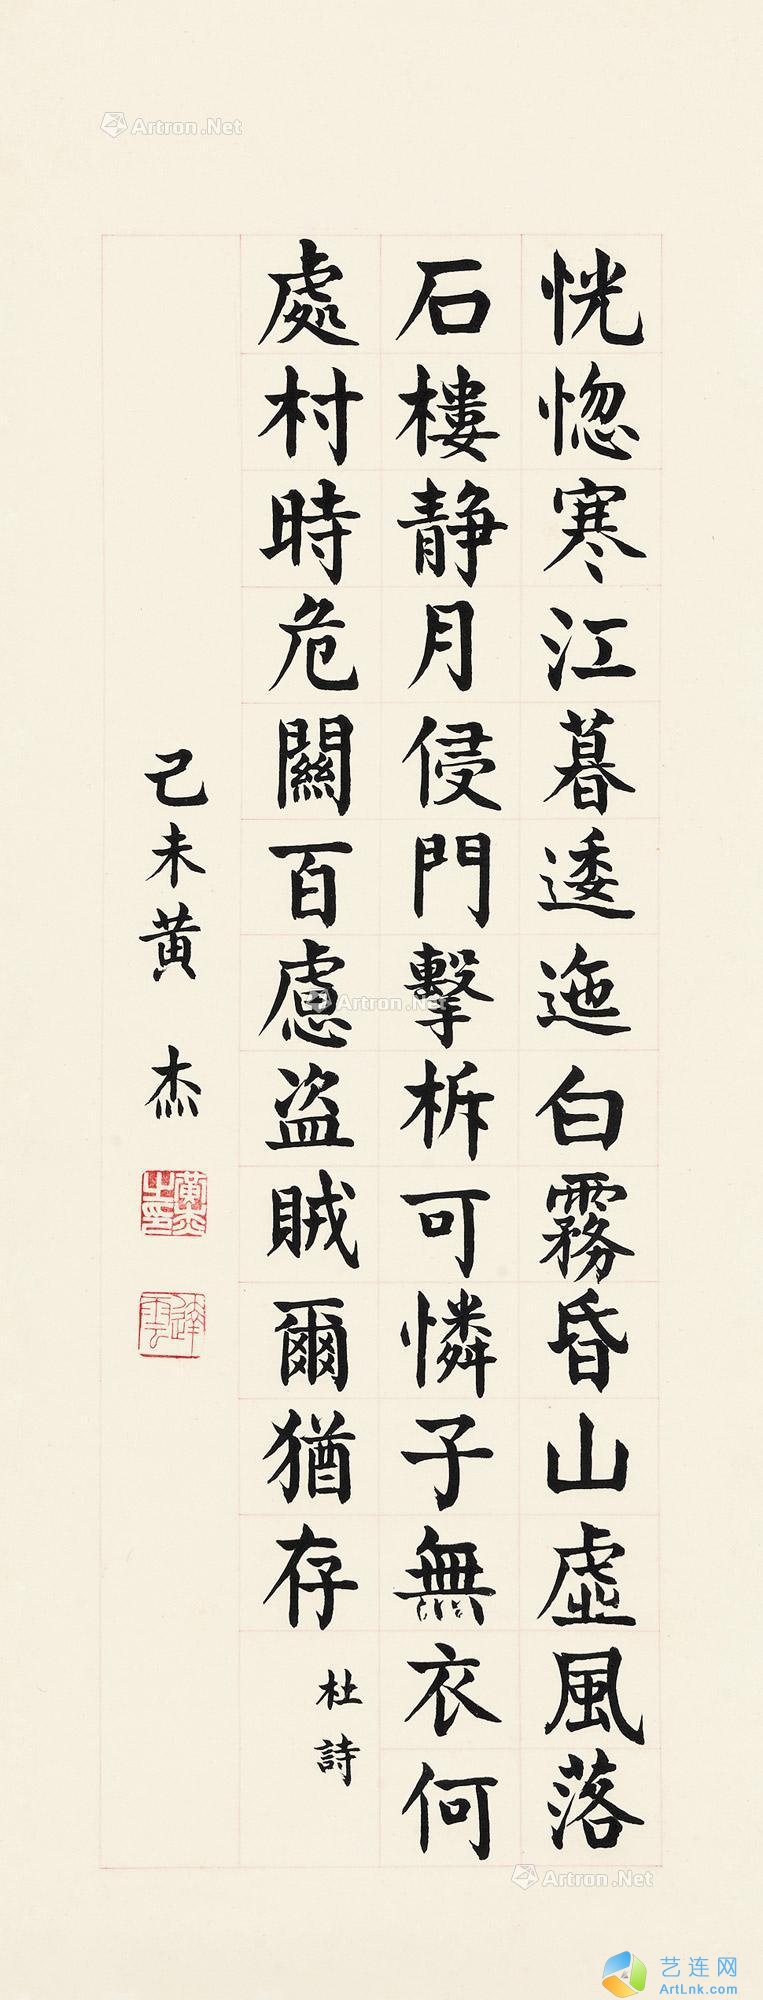 恍惚寒江暮逶迤白霧昏山虛風落
石樓静月侵門擊柝可憐子無衣何
處村時危關百慮盜賊爾猶存
杜詩
己未黃杰
黃杰之印
達雲
Artron.Net
Artron.Net
Artron.Net
艺连网
ArtLnk.com